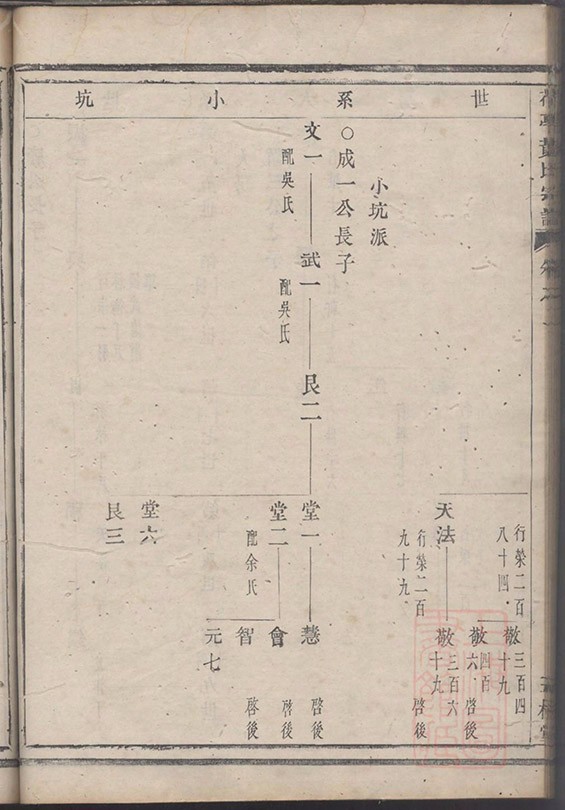 世系小坑
行榮二百
八十四
敬三百四
十九
敬四百
六
啓後
天法
行榮二百
九十九
敬三百六
十九
啓後
小坑派
○成一公長子
文一
配吳氏
武一
配吳氏
艮二
堂一
慧
啓後
堂二
配余氏
會
啓後
智
啓後
元七
堂六
艮三